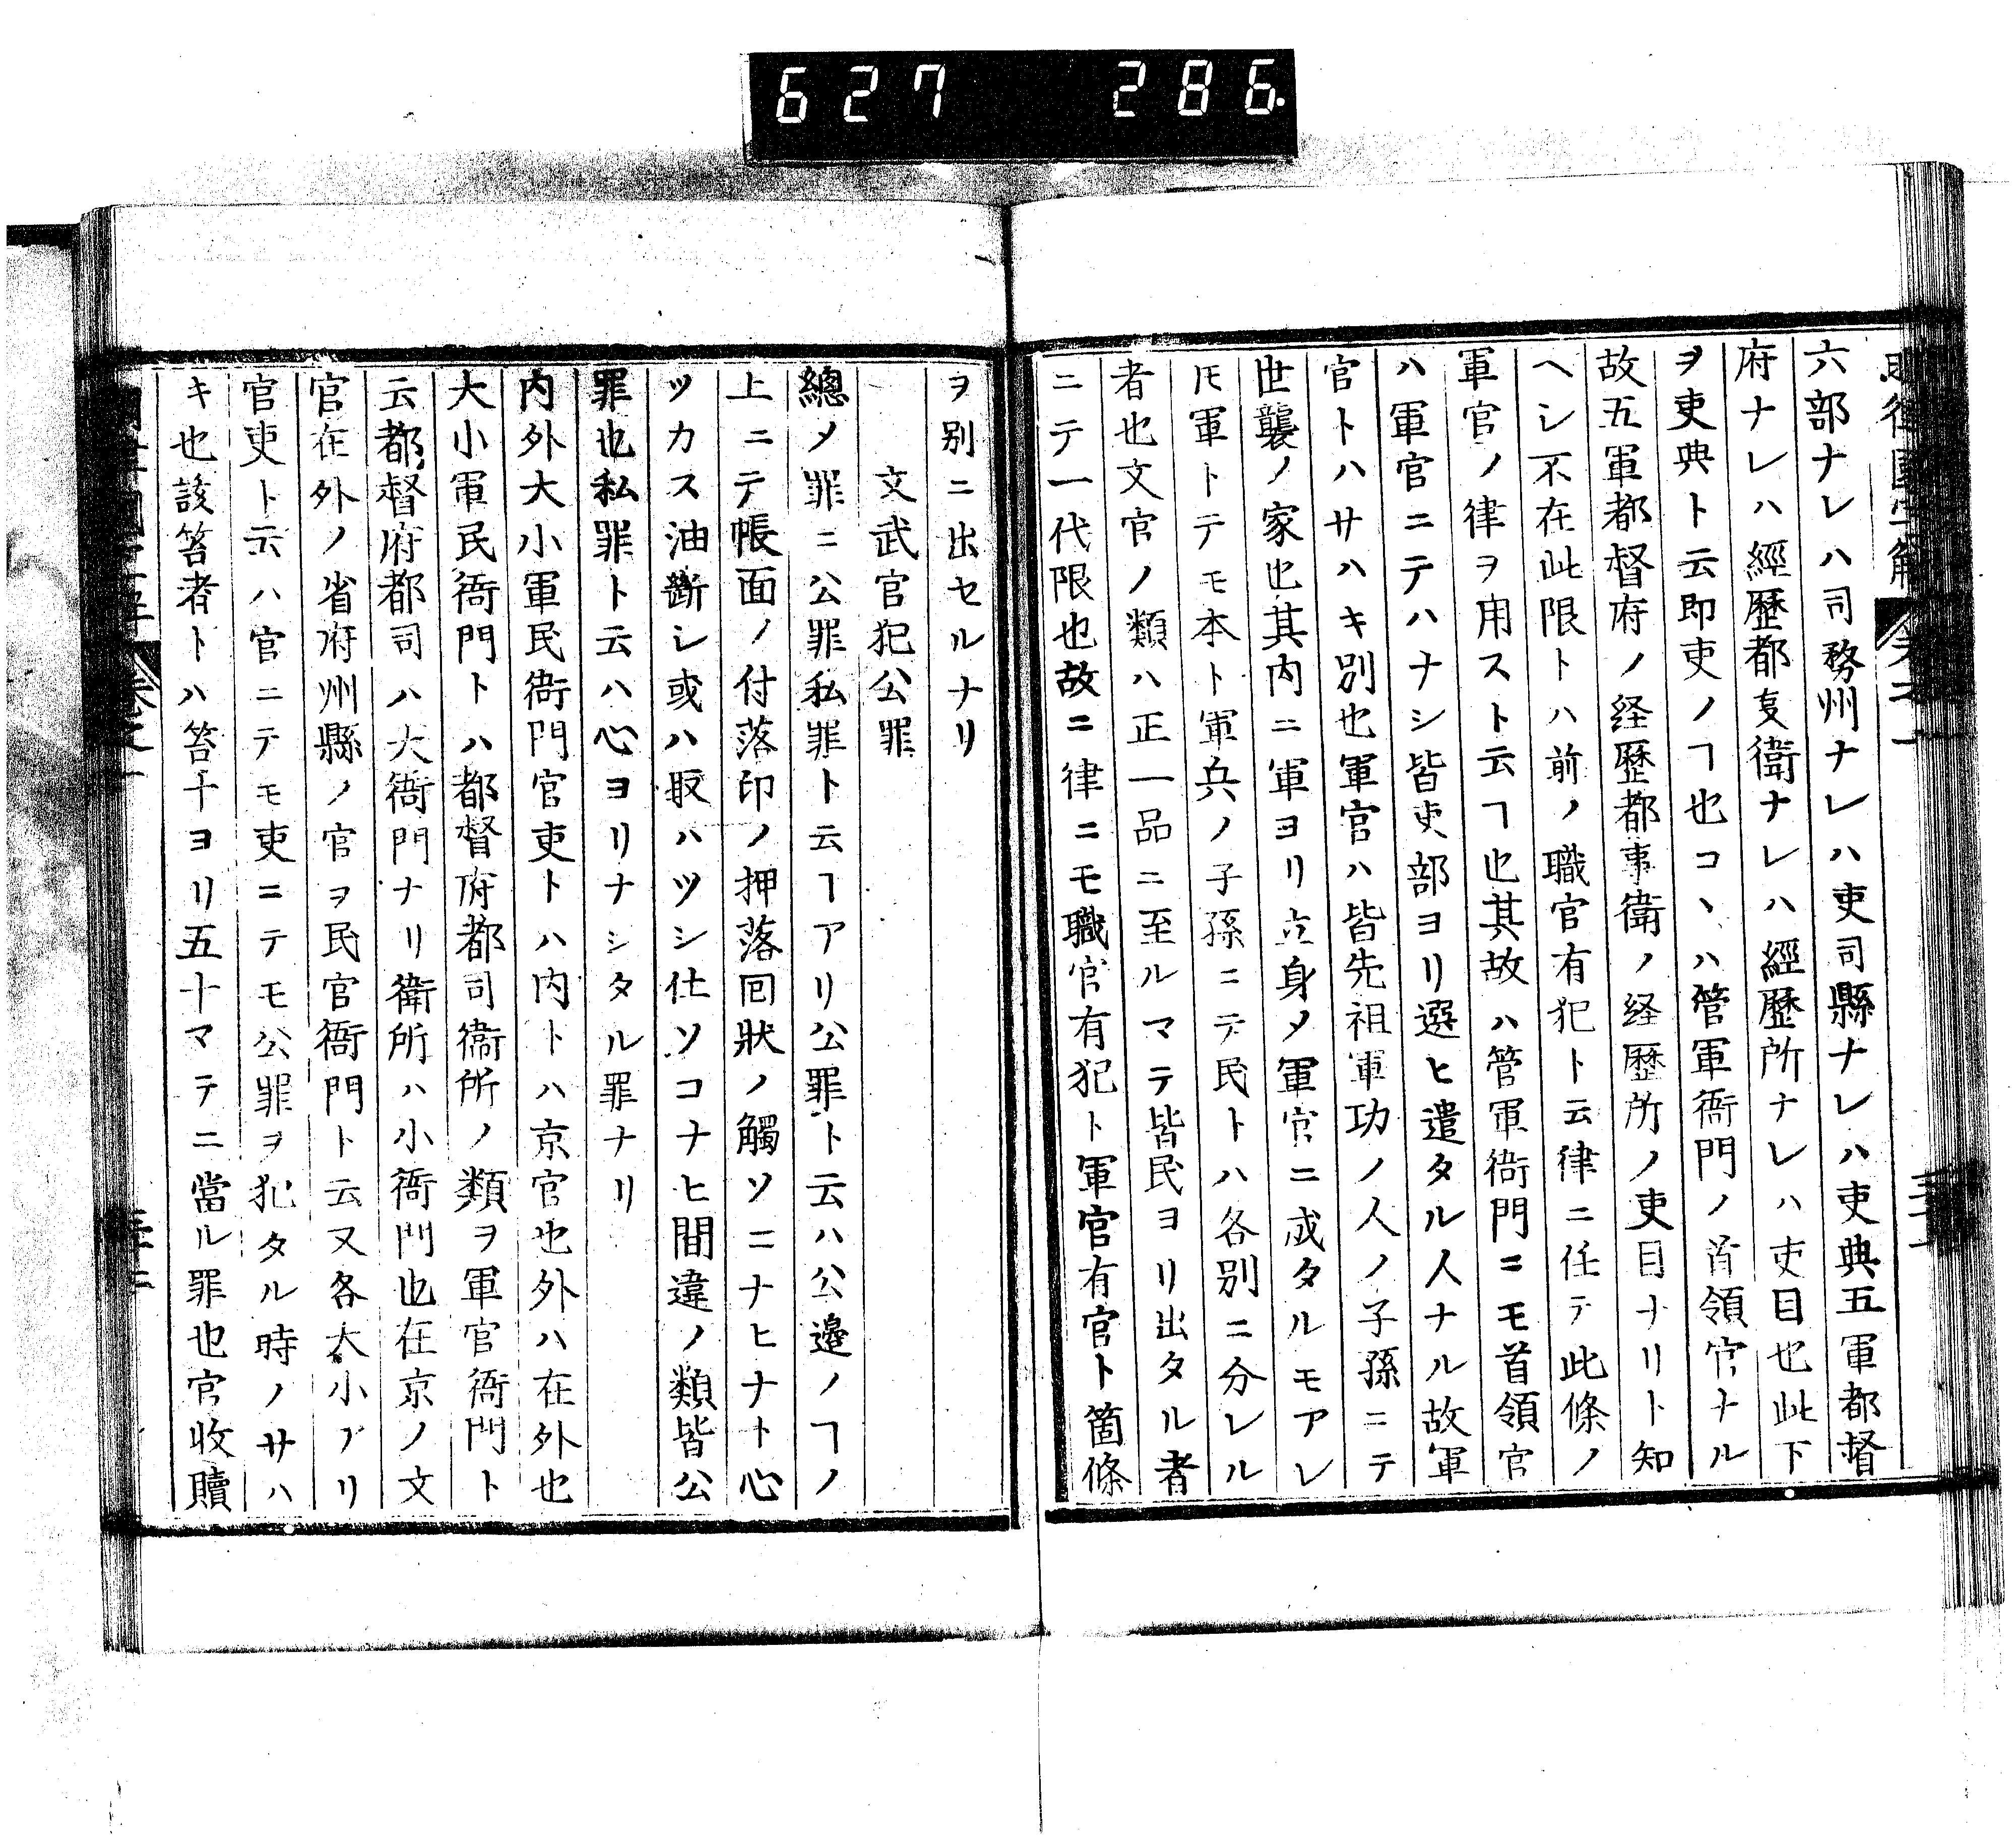 627 286
六部ナレハ司務州ナレハ吏司縣ナレハ吏典五軍都督
府ナレハ經歷都㕝衛ナレハ經歷所ナレハ吏目也此下
ヲ吏典ト云即吏ノヿ也コヽハ管軍衙門ノ首領官ナル
故五軍都督府ノ経歷都事衛ノ経歷所ノ吏目ナリト知
ヘシ不在此限トハ前ノ職官有犯ト云律ニ任テ此條ノ
軍官ノ律ヲ用スト云ヿ也其故ハ管軍衙門ニモ首領官
ハ軍官ニテハナシ皆吏部ヨリ選ヒ遣タル人ナル故軍
官トハサハキ別也軍官ハ皆先祖軍功ノ人ノ子孫ニテ
世襲ノ家也其内ニ軍ヨリ立身メ軍官ニ成タルモアレ
𪜈軍トテモ本ト軍兵ノ子孫ニテ民トハ各別ニ分レル
者也文官ノ類ハ正一品ニ至ルマテ皆民ヨリ出タル者
ニテ一代限也故ニ律ニモ職官有犯ト軍官有官ト箇條
ヲ別ニ出セルナリ
文武官犯公罪
總メ罪ニ公罪私罪ト云ヿアリ公罪ト云ハ公邉ノヿノ
上ニテ帳面ノ付落印ノ押落囘狀ノ觸ソニナヒナト心
ツカス油斷シ或ハ取ハツシ仕ソコナヒ間違ノ類皆公
罪也私罪ト云ハ心ヨリナシタル罪ナリ
内外大小軍民衙門官吏トハ内トハ京官也外ハ在外也
大小軍民衙門トハ都督府都司衞所ノ類ヲ軍官衙門ト
云都督府都司ハ大衙門ナリ衛所ハ小衙門也在京ノ文
官在外ノ省府州縣ノ官ヲ民官衙門ト云又各大小アリ
官吏ト云ハ官ニテモ吏ニテモ公罪ヲ犯タル時ノサハ
キ也該笞者トハ笞十ヨリ五十マテニ當ル罪也官收贖